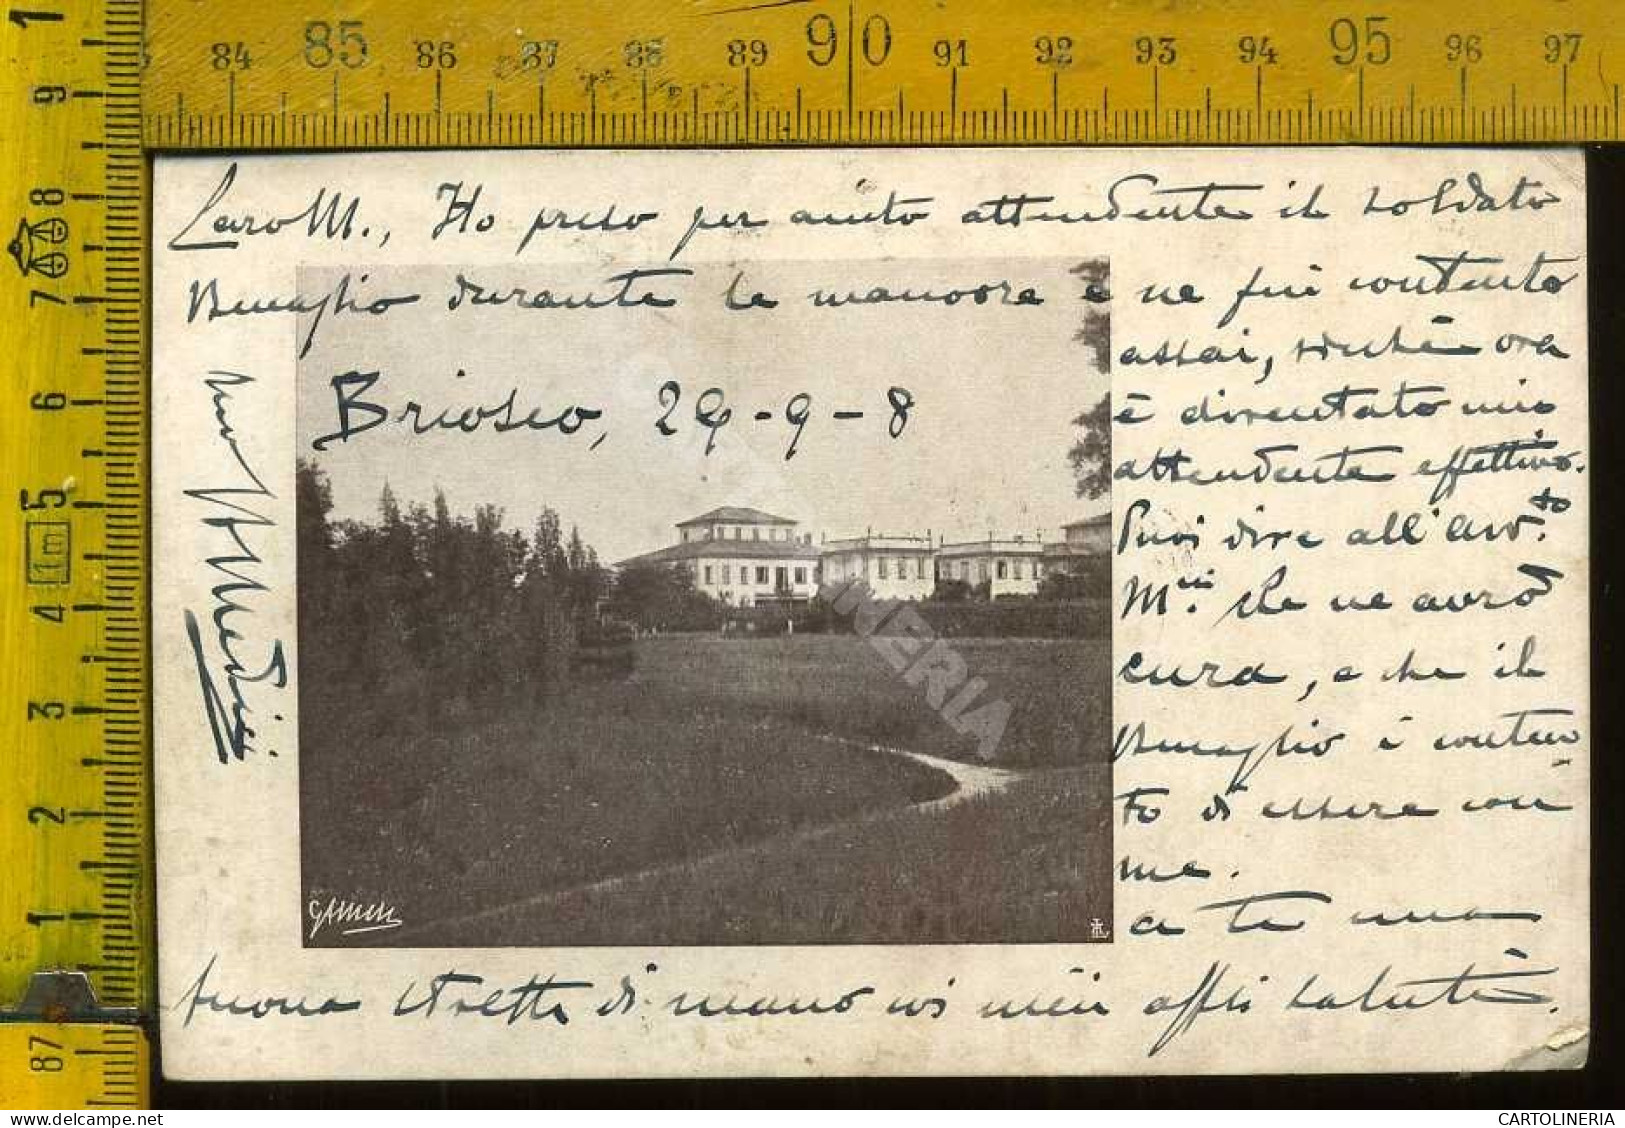 84 85 86 87 88 89 90 91 92 93 94 95 96 97
Caro M., Ho preso per aiuto attendente il soldato
Binaghio durante le manovre e ne fui contento
assai, sicchè ora
è diventato mio
attendente effettivo.
Puoi dire all'avv.to
M.ni che ne avrò
cura, e che il
Binaghio è conten
to di essere con
me.
a te una
buona stretta di mano coi miei aff.i saluti.
Briosco, 29-9-8
1 9 8 7 6 5 4 3 2 1 87
1m
CARTOLINERIA